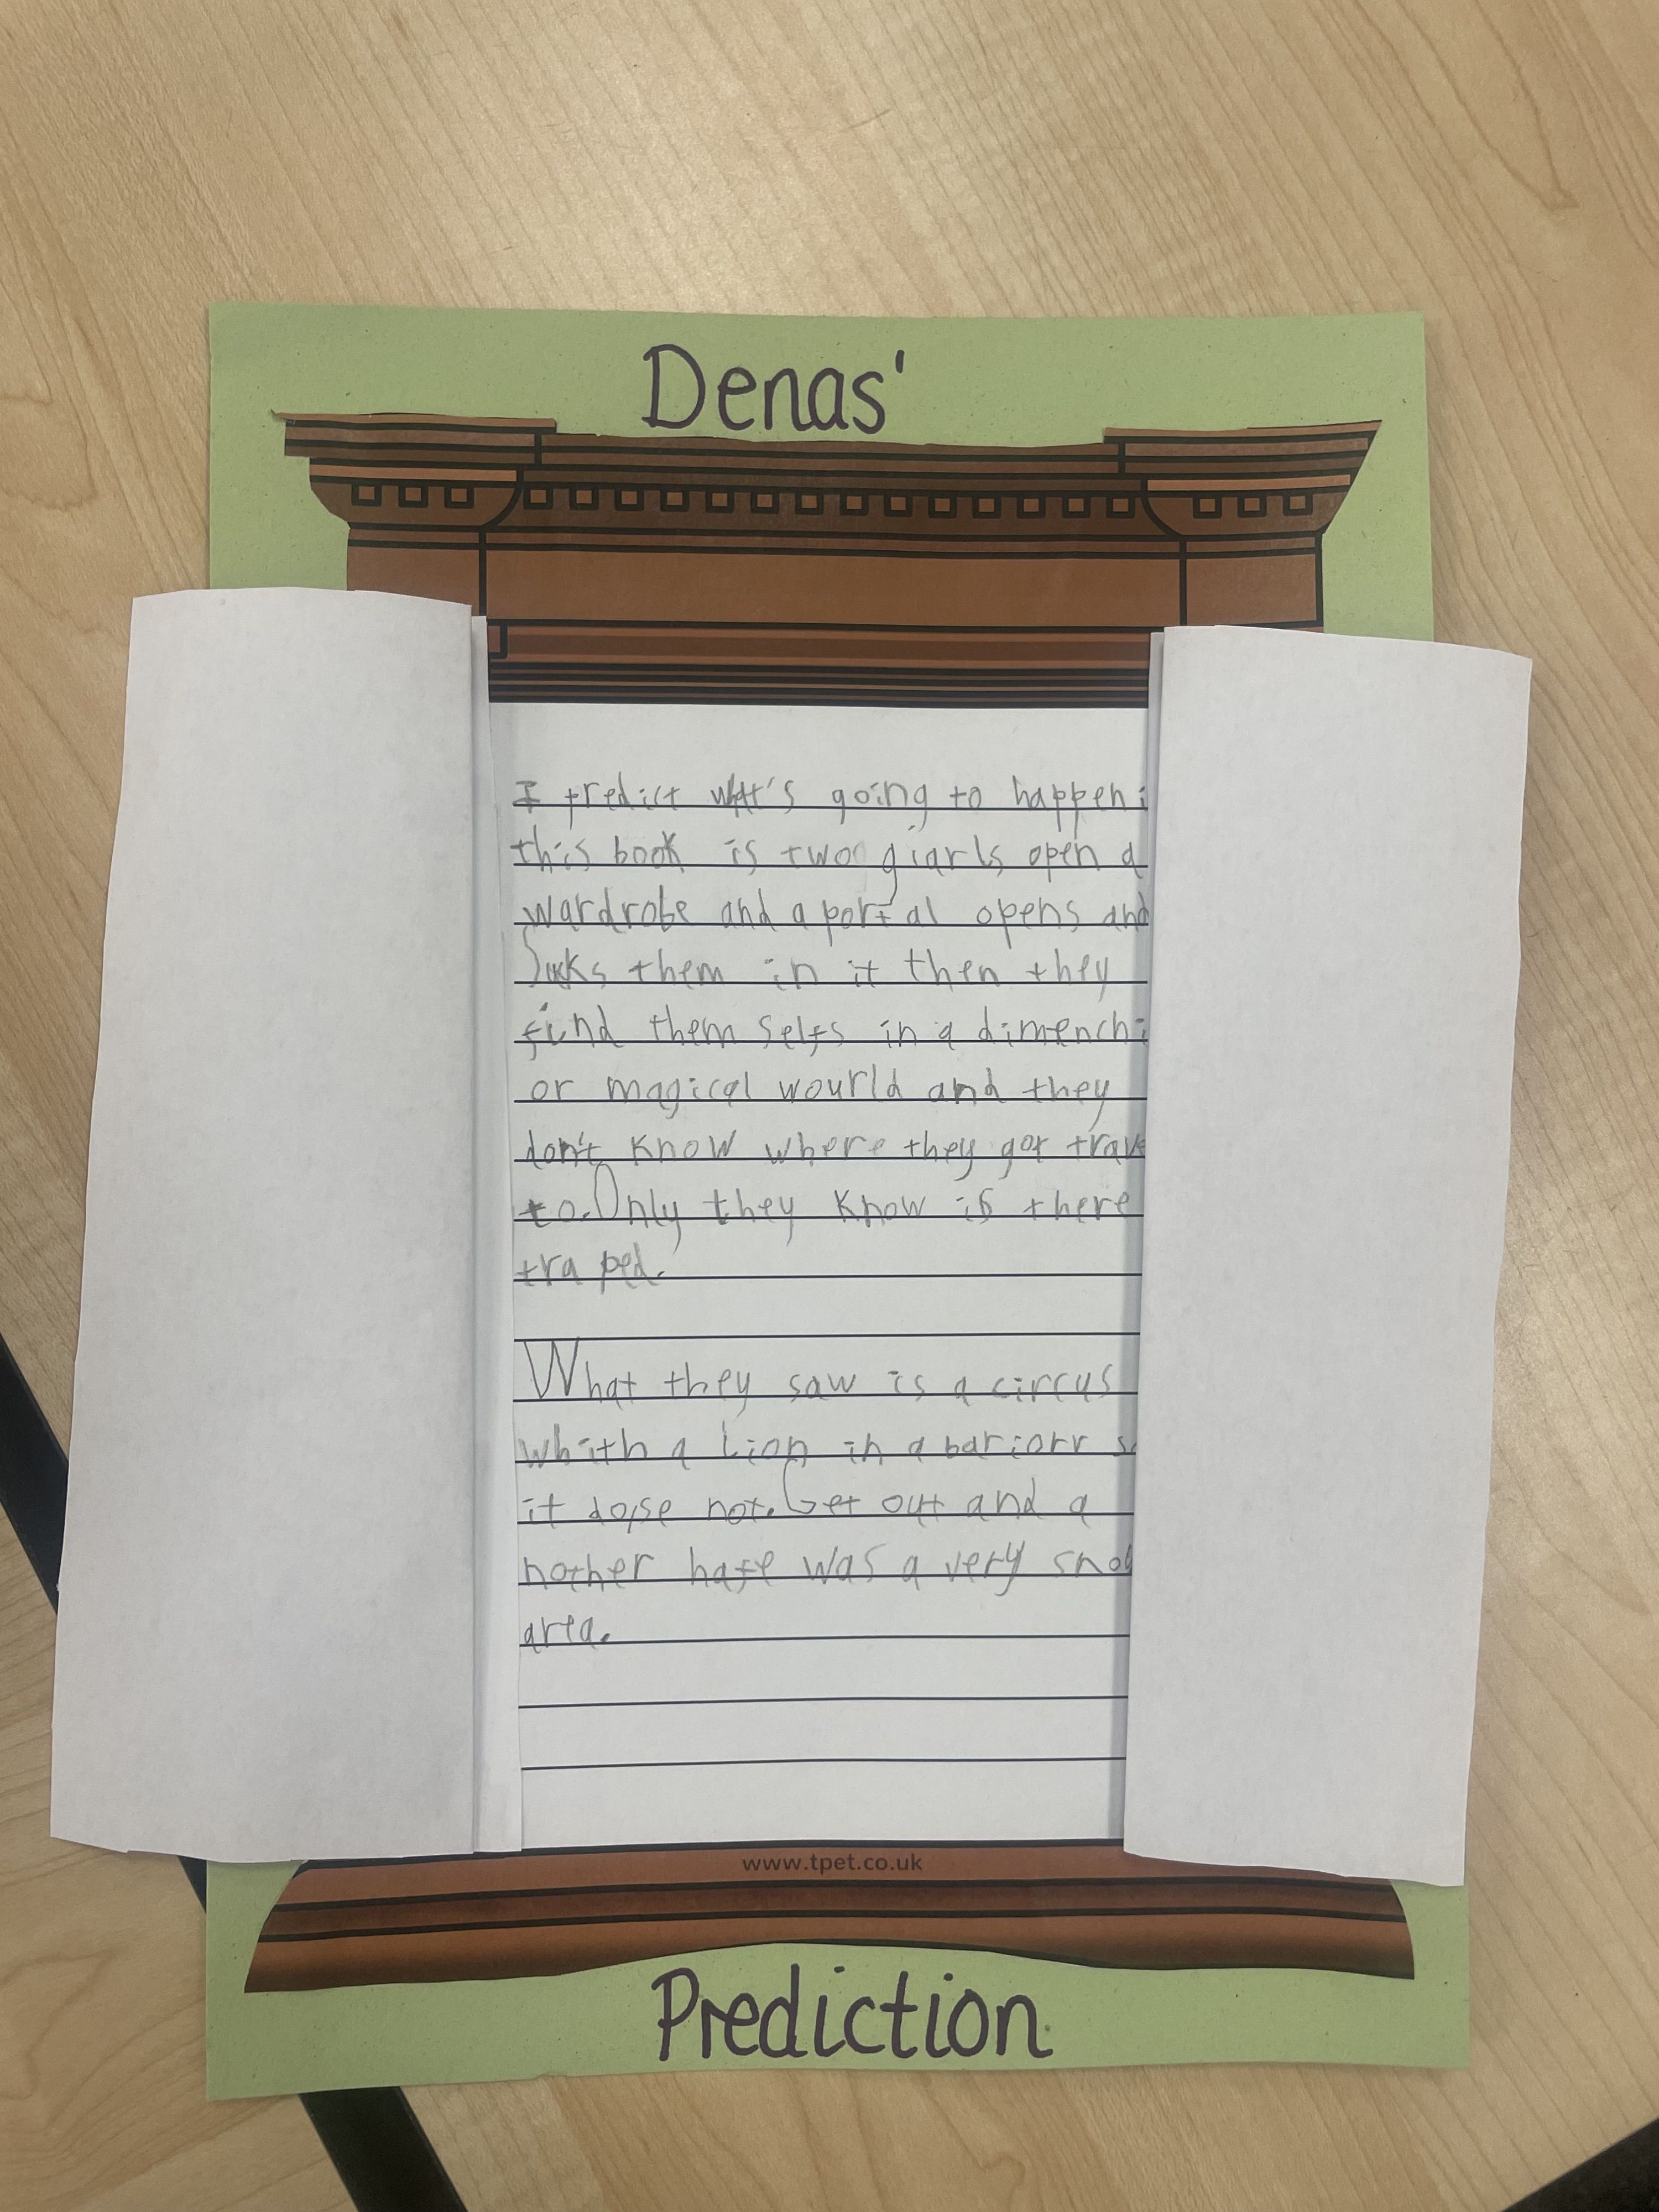 Denas'
I predict what's going to happen i
this book is two giarls open a
wardrobe and a portal opens and
sucks them in it then they
find them selfs in a dimenchi
or magical wourld and they
don't know where they got trave
to. Only they know is there
traped.
What they saw is a circus
whith a Lion in a bariorr so
it dose not. Get out and a
nother hafe was a very snow
area.
www.tpet.co.uk
Prediction